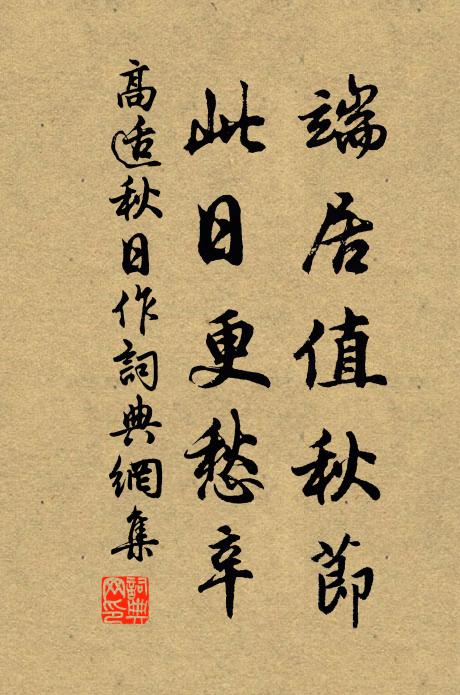 端居值秋節
此日更愁辛
高适秋日作詞典網集
詞典
网印